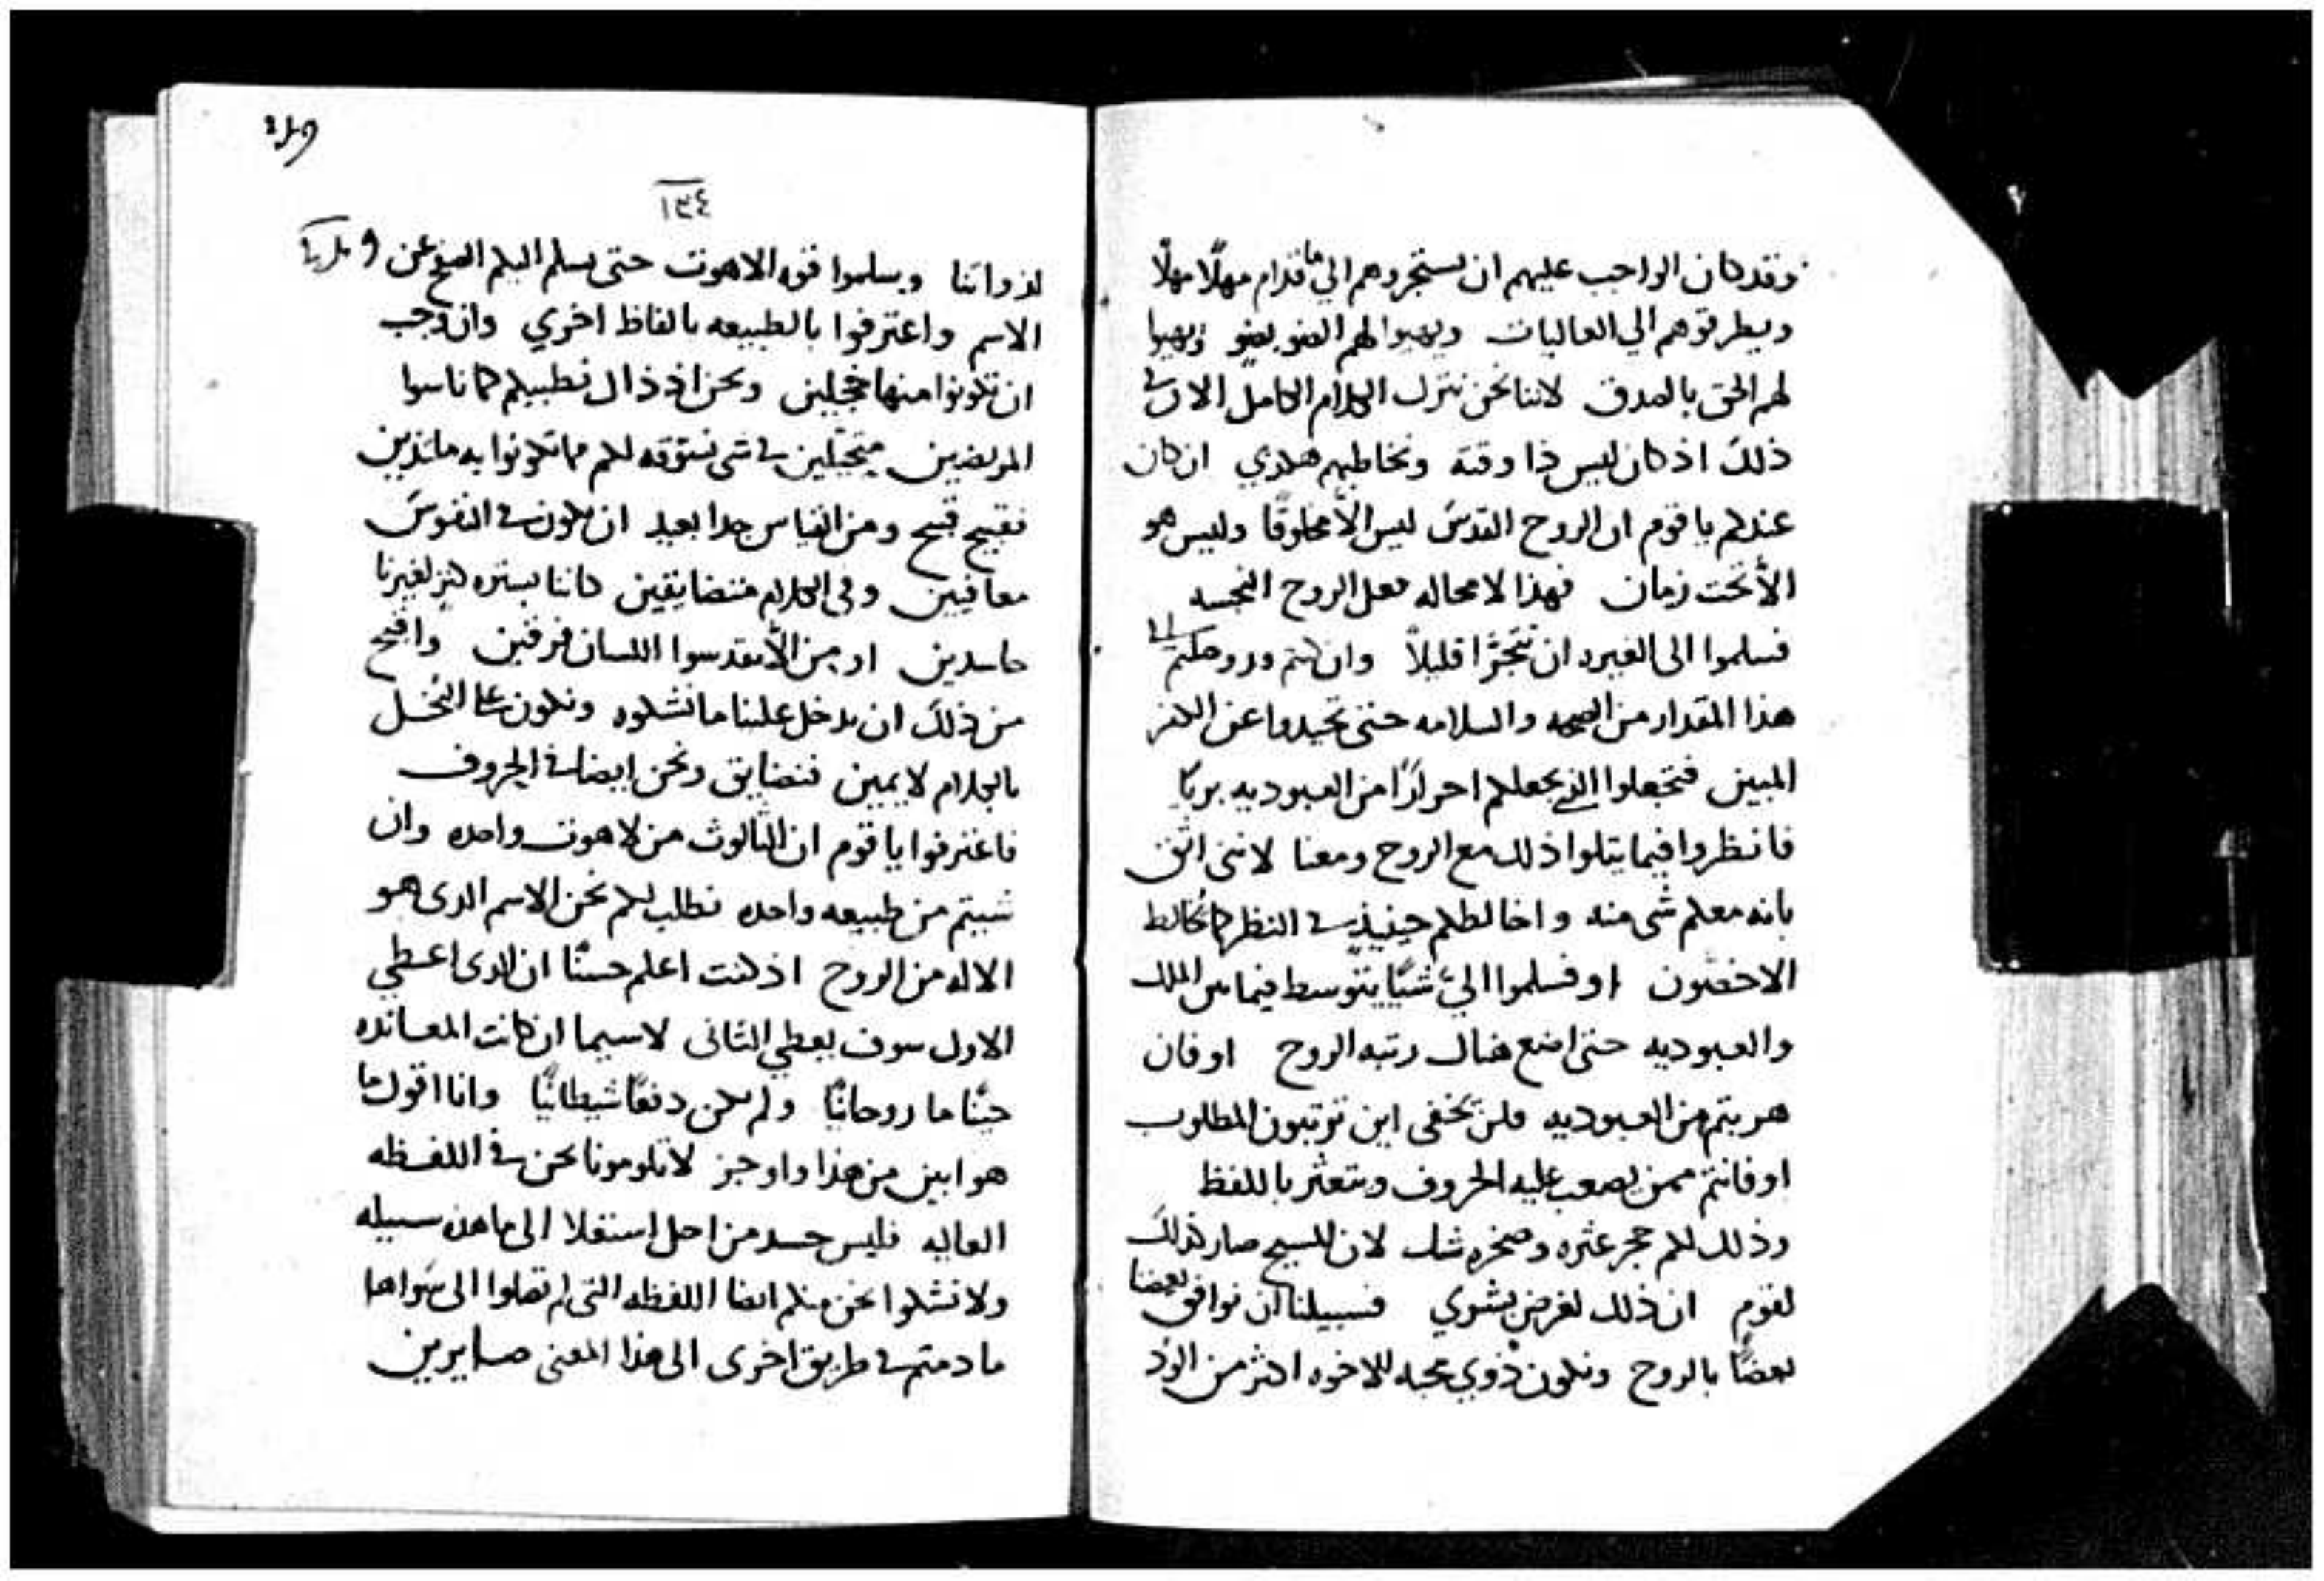 وقد كان الواجب عليهم ان يستجروهم الي ما قدام مهلًا مهلًا
ويطرقوهم الي العاليات ويهبوا لهم الضو بضو ويهبوا
لهم الحق بالصدق لاننا نحن نترك الكلام الكامل الان في
ذلك اذ كان ليس ذا وقته ونخاطبهم هكدي ان كان
عندكم يا قوم ان الروح القدس ليس الّا مخلوقًا وليس هو
الّا تحت زمان فهذا لا محاله فعل الروح النجسه
فسلموا الى الغيره ان تتجرّا قليلاً وان كنتم وروحكم في
هذا المقدار من الصحه والسلامه حتى تحيدوا عن الكفر
المبين فتجعلوا الذي يجعلكم احرارًا من العبوديه بريًا
فانظروا فيما يتلوا ذلك مع الروح ومعنا لانني اثق
بانه معكم شى منه واخالطكم حينيذٍ في النظر كما تخالط
الاخصّون او فسلموا اليّ شيًا يتوسط فيما بين الملك
والعبوديه حتى اضع هناك رتبه الروح او فان
هربتم من العبوديه فلن تخفى اين ترتبون المطلوب
او فانتم ممن يصعب عليه الحروف وتتعثر باللفظ
وذلك لكم حجر عثره وصخره شك لان المسيح صار كذلك
لقوم ان ذلك لغرض بشري فسبيلنا ان نوافق بعضنا
بعضًا بالروح ونكون ذوي محبه للاخوه اكثر من الود
٢٤٩
١٣٤
لذواتنا وسلموا قوه الاهوت حتى نسلم اليكم الفسح عن
الاسم واعترفوا بالطبيعه بالفاظ اخري وان وجب
ان تكونوا منها خجلين ونحن اذ ذاك نطببكم كما ناسوا
المريضين متحيّلين في شى نسوقه لكم مما تكونوا به ملتذين
فقبيح قبيح ومن القياس جدا بعيد ان نكون في النفوس
معافيين وفى الكلام متضايقين كاننا بستره كنز لغيرنا
حاسدين او من الّا نقدسوا اللسان فرقين واقبح
من ذلك ان يدخل علينا ما نشكوه ونكون على البخل
بالكلام لايمين فنضايق ونحن ايضا في الحروف
فاعترفوا يا قوم ان الثالوث من لاهوت واحده وان
شييتم من طبيعه واحده نطلب لكم نحن الاسم الدى هو
الاله من الروح اذ كنت اعلم حسنًا ان الدى اعطي
الاول سوف يعطي الثانى لا سيما ان كانت المعانده
جبنًا ما روحانيًا ولم تكن دفعًا شيطانيًا وانا اقول ما
هو ابين من هذا واوجز لا تلومونا نحن في اللفظه
العاليه فليس حسد من اجل استعلا الى ما هده سبيله
ولا نشكوا نحن منكم ايضا اللفظه التى لم تصلوا الى سواها
ما دمتم في طريق اخرى الى هذا المعنى صايرين